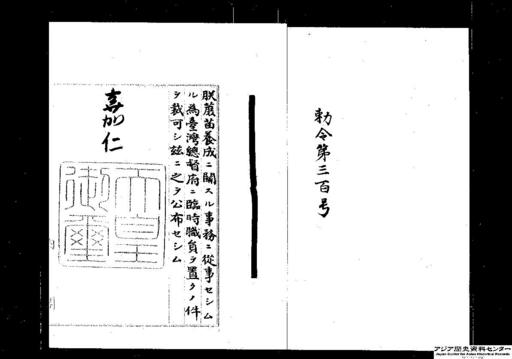 勅令第三百号
朕蔗苗養成ニ関スル事務ニ従事セシム
ル為臺灣總督府ニ臨時職員ヲ置クノ件
ヲ裁可シ茲ニ之ヲ公布セシム
嘉仁
天皇
御璽
アジア歴史資料センター
Japan Center for Asian Historical Records